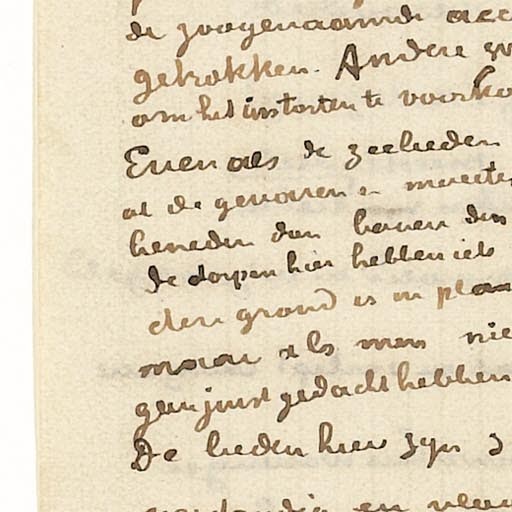 de zoogenaamde acc
getrokken. Andere zo
om het instorten te voorko
Even als de zeelieden
al de gevaren en moeite
beneden dan boven den
de dorpen hier hebben iets
den grond is in plaa
maar als men nie
geen juist gedacht hebben
De lieden hier zyn z
en